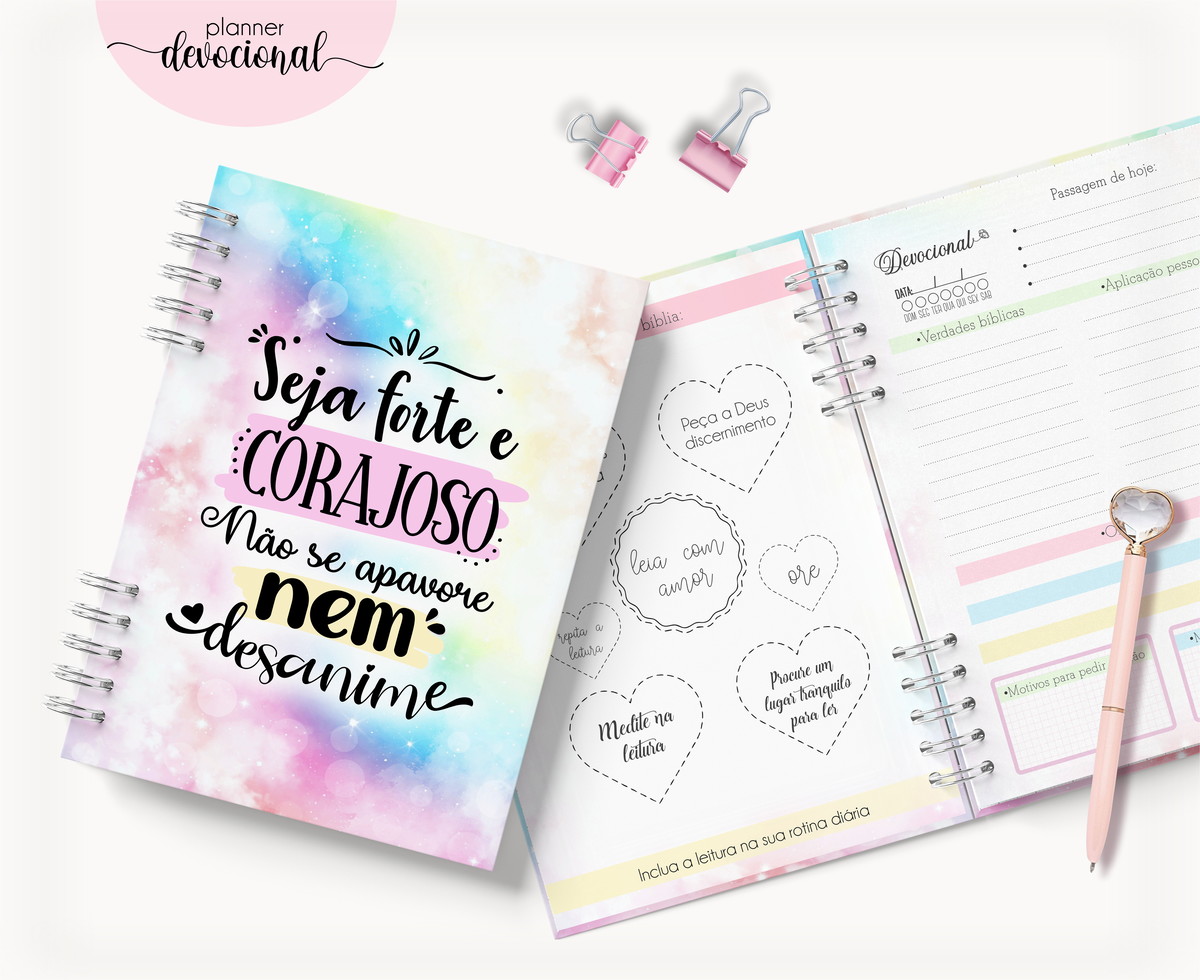 planner
devocional
Seja forte e
CORAJOSO
Não se apavore
nem
desanime
bíblia:
Peça a Deus
discernimento
leia com
amor
ore
repita a
leitura
Procure um
lugar tranquilo
para ler
Medite na
leitura
Inclua a leitura na sua rotina diária
Devocional
DATA: / /
DOM SEG TER QUA QUI SEX SAB
Passagem de hoje:
•Verdades bíblicas
•Aplicação
•Motivos para pedir